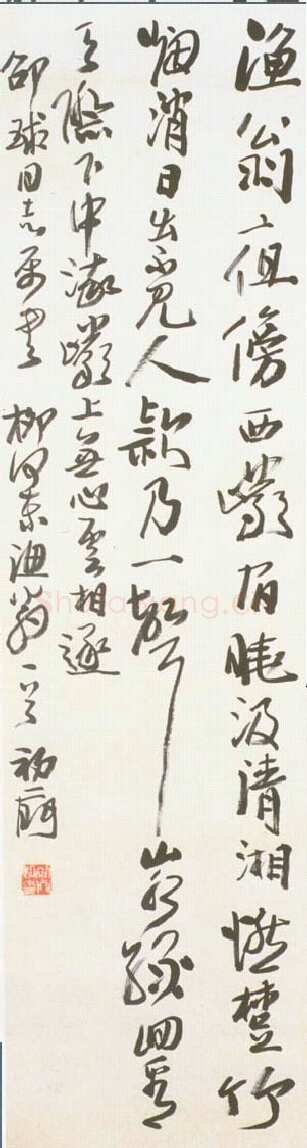 漁翁夜傍西巖宿曉汲清湘燃楚竹
煙消日出不見人欸乃一聲山水綠回看
天際下中流巖上無心雲相逐
邵球同志属書 柳河東漁翁一首